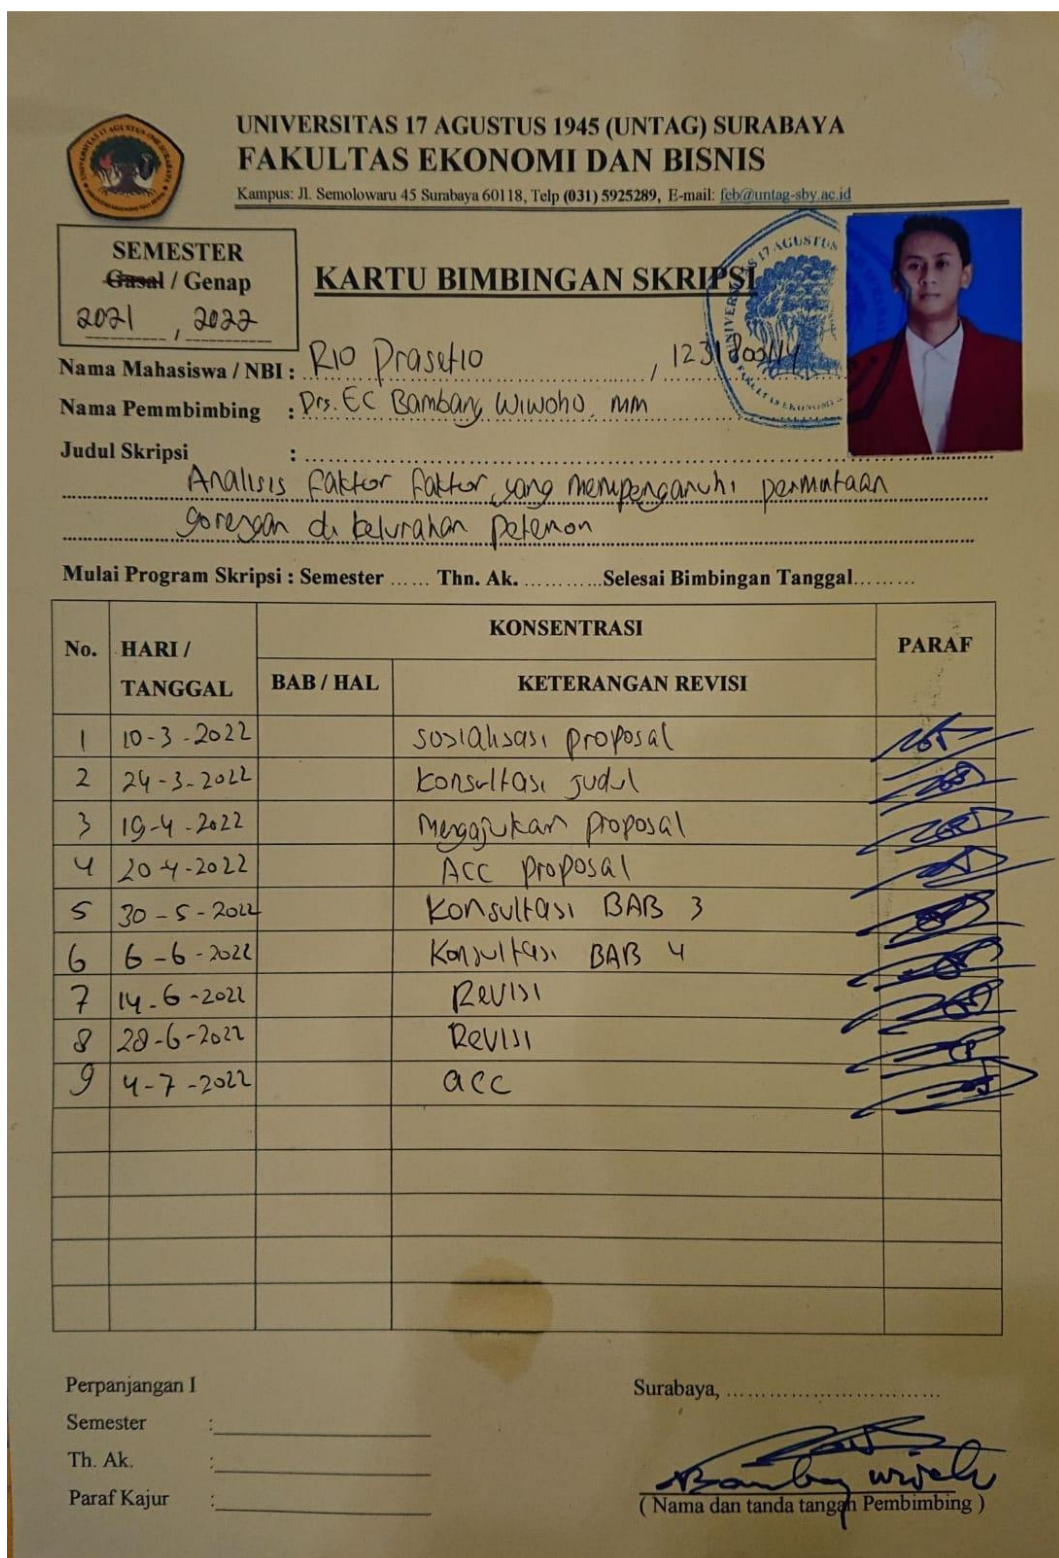 UNIVERSITAS 17 AGUSTUS 1945 (UNTAG) SURABAYA
FAKULTAS EKONOMI DAN BISNIS
Kampus: Jl. Semolowaru 45 Surabaya 60118, Telp (031) 5925289, E-mail: feb@untag-sby.ac.id
SEMESTER
Gasal / Genap
2021 , 2022
KARTU BIMBINGAN SKRIPSI
Nama Mahasiswa / NBI : Rio Prasetio
Nama Pemmbimbing : Drs. EC Bambang Wiwoho. MM
Judul Skripsi :
Analisis faktor faktor yang mempengaruhi permintaan
gorengan di kelurahan petemon
Mulai Program Skripsi : Semester ...... Thn. Ak. ............Selesai Bimbingan Tanggal.........
No. HARI / TANGGAL KONSENTRASI PARAF
BAB / HAL KETERANGAN REVISI
1 10-3-2022 sosialisasi proposal
2 24-3-2022 konsultasi judul
3 19-4-2022 Mengajukan proposal
4 20-4-2022 ACC proposal
5 30-5-2022 Konsultasi BAB 3
6 6-6-2022 Konsultasi BAB 4
7 14-6-2022 Revisi
8 28-6-2022 Revisi
9 4-7-2022 acc
Perpanjangan I
Semester :
Th. Ak. :
Paraf Kajur :
Surabaya, ..............................
( Nama dan tanda tangan Pembimbing )